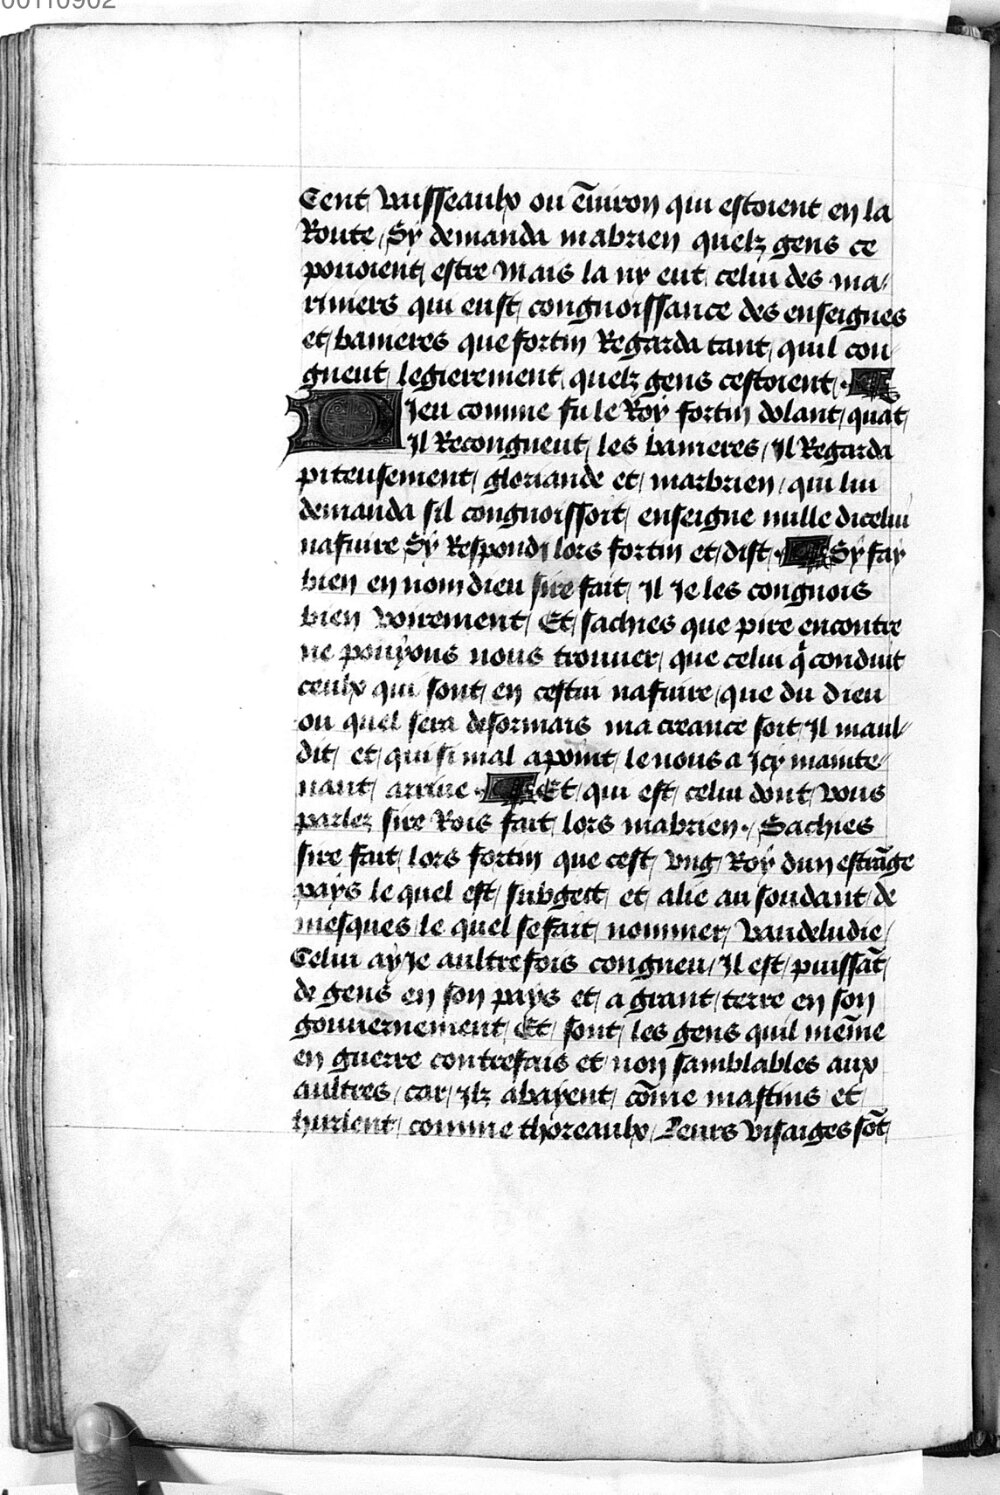 00110902
Cent vaisseaulx ou ēuiron qui estoient en la
Route / Sy demanda mabrien quelz gens ce
pouoient estre Mais la ny eut celui des ma/
riniers qui eust congnoissance des enseignes
et banieres que fortin Regarda tant quil con
gneut legierement quelz gens cestoient .
Dieu comme fu le Roy fortin dolant quāt
Il Recongneut les banieres / Il Regarda
piteusement gloriande et marbrien / qui lui
demanda sil congnoissoit enseigne nulle dicelui
nafuire Sy Respondi lors fortin et dist . Sy fay
bien en nom dieu sire fait Il Je les congnois
bien voirement / Et saches que pire encontre
ne pouyons nous trouuer / que celui q̄ conduit
ceulx qui sont en cestui nafuire / que du dieu
ou quel sera desormais ma creance soit Il maul/
dit et qui si mal apoint le nous a Icy mainte/
nant arriue . Et qui est celui dont vous
parlez sire Rois fait lors mabrien . Sachies
sire fait lors fortin que cest vng Roy dun estrāge
pays le quel est subgect et alie au soudant de
mesques le quel se fait nommer / vaudeludie /
Celui ay Je aultrefois congneu / Il est puissāt
de gens en son pays et a grant terre en son
gouuernement / Et sont les gens quil meīne
en guerre contrefais et non samblables aux
aultres / car / Ilz abayent cōme mastins et
hurlent comme thoreaulx / Leurs visaiges sōt